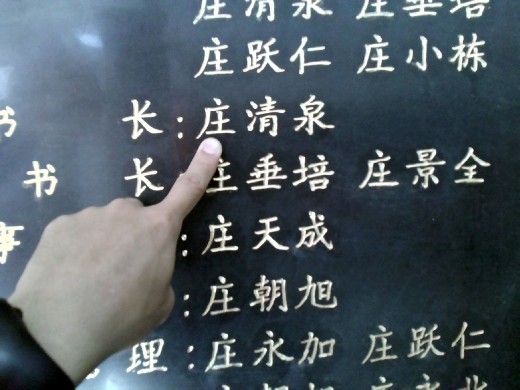 庄清泉 庄垂培
庄跃仁 庄小栋
书 长:庄清泉
书 长:庄垂培 庄景全
事 :庄天成
:庄朝旭
理:庄永加 庄跃仁